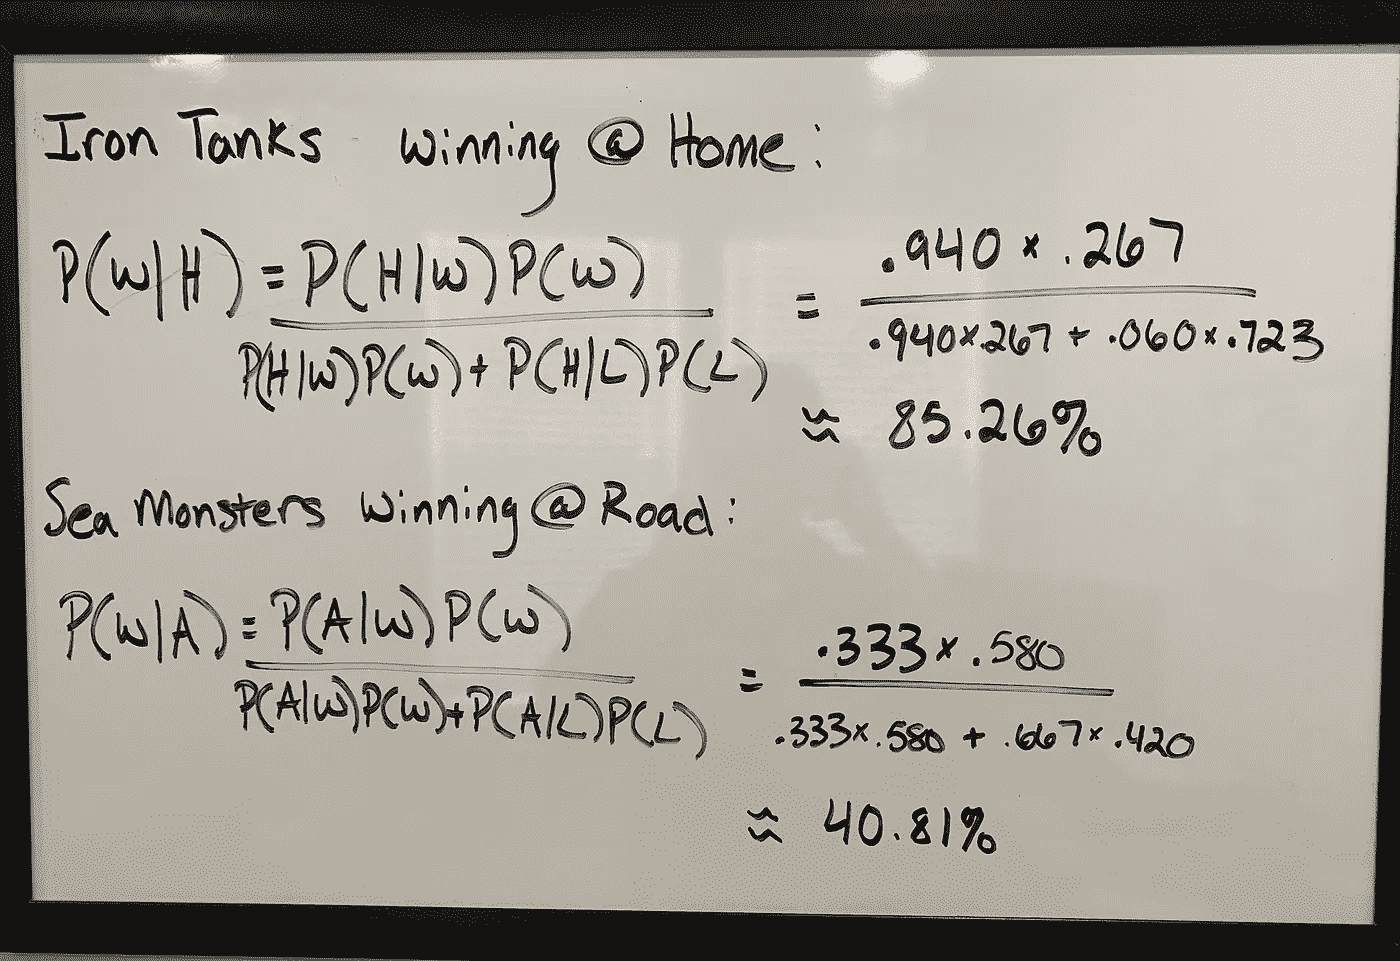 Iron Tanks winning @ Home:
P(W|H) = P(H|W)P(W) = .940 × .267
P(H|W)P(W) + P(H|L)P(L) .940×.267 + .060×.723
≈ 85.26%
Sea Monsters winning @ Road:
P(W|A) = P(A|W)P(W) = .333 × .580
P(A|W)P(W)+P(A|L)P(L) .333×.580 + .667×.420
≈ 40.81%